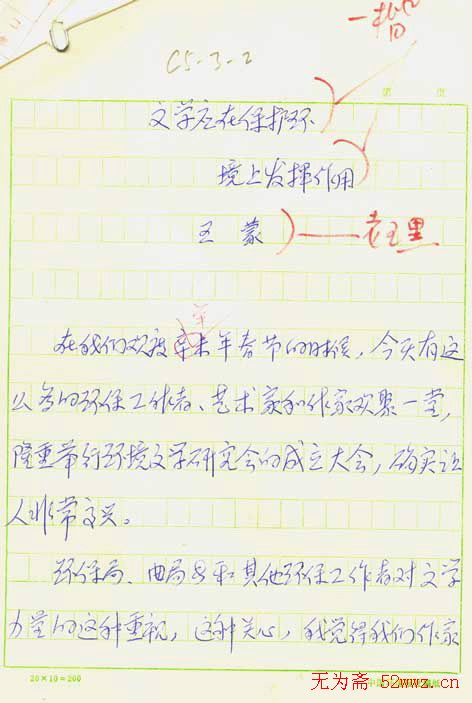 C5-3-2
第 页
文学应在保护环
境上发挥作用
王 蒙
老五黑
在我们欢度辛未年春节的时候，今天有这
么多的环保工作者、艺术家和作家欢聚一堂，
隆重举行环境文学研究会的成立大会，确实让
人非常高兴。
环保局、曲局长和其他环保工作者对文学
力量的这种重视，这种关心，我觉得我们作家
20×10=200
无为斋 52wwz.cn